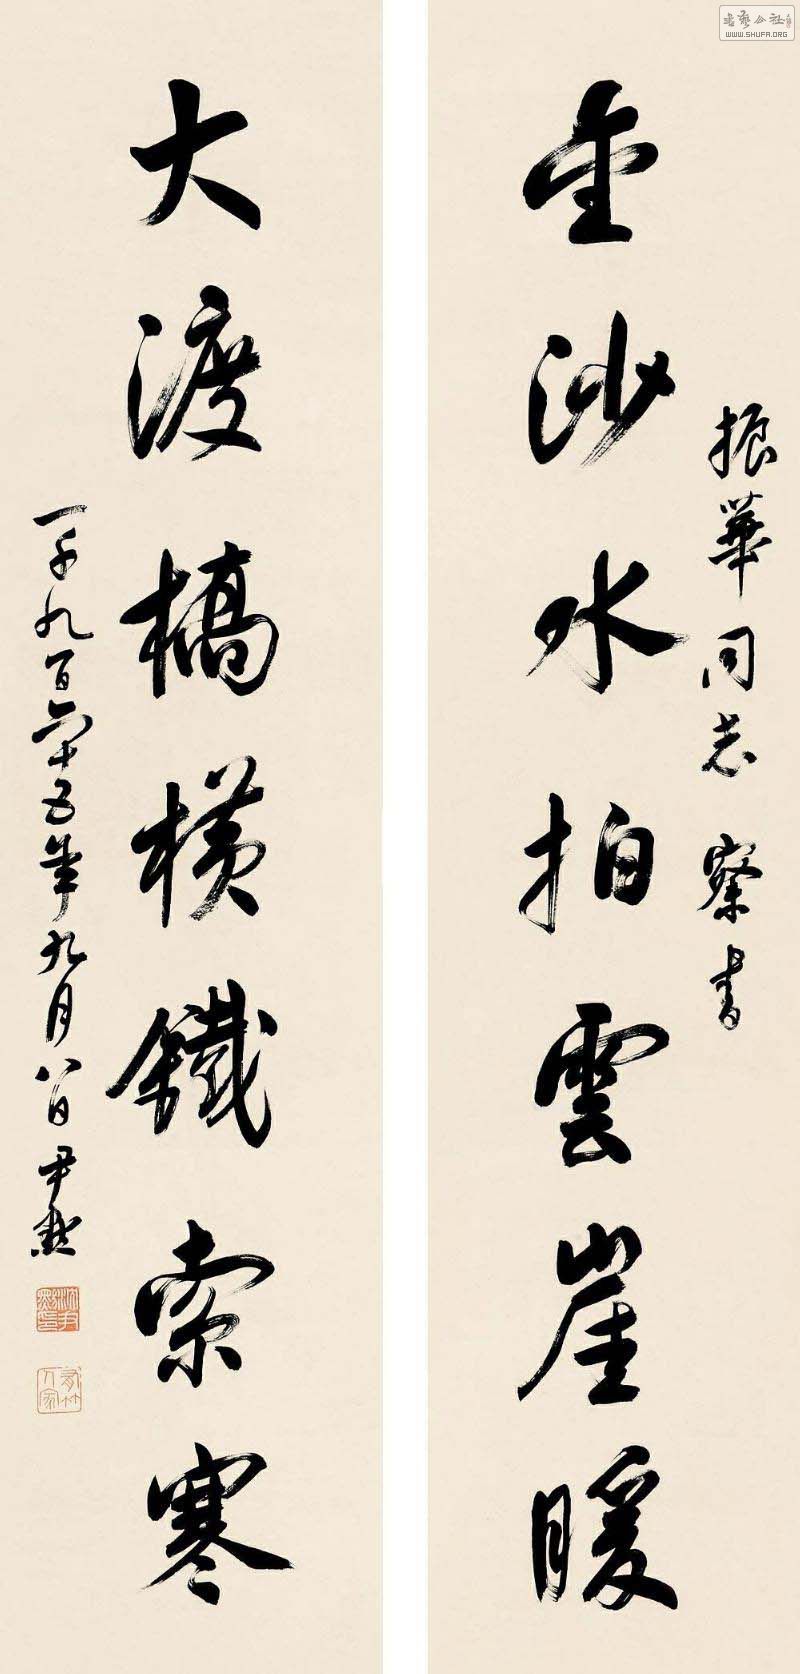 書藝公社
WWW.SHUFA.ORG
振華同志 察書
金沙水拍雲崖暖
大渡橋橫鐵索寒
一千九百六十五年九月八日尹默
沈尹默印
有竹人家